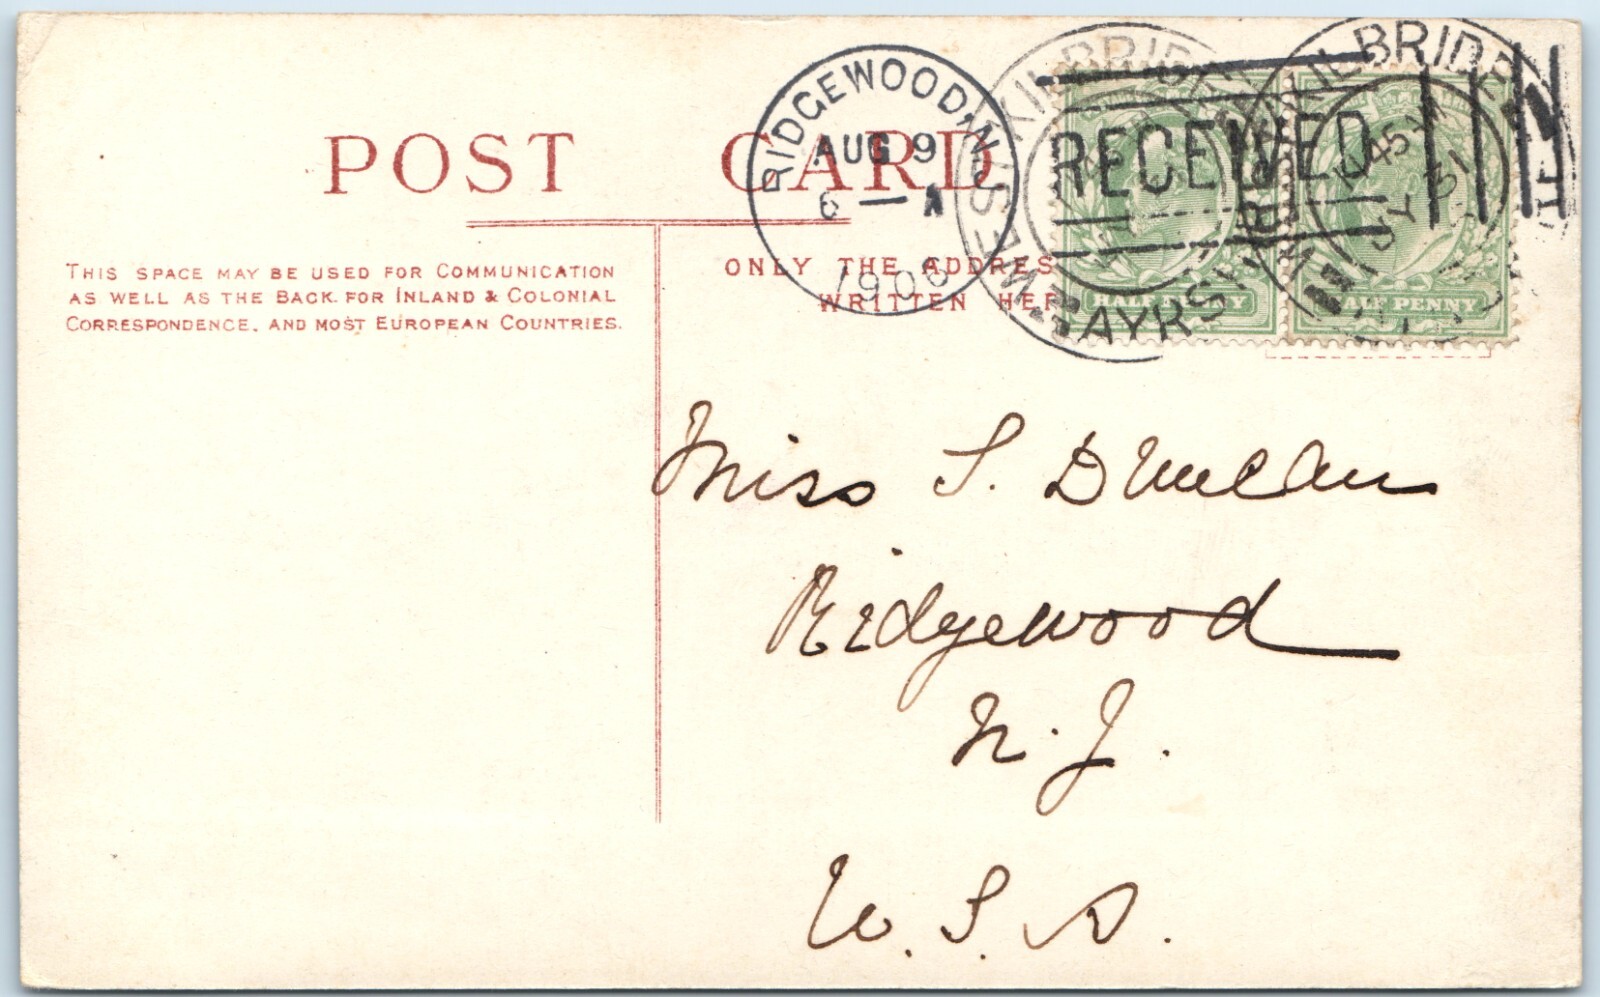 POST CARD
THIS SPACE MAY BE USED FOR COMMUNICATION
AS WELL AS THE BACK. FOR INLAND & COLONIAL
CORRESPONDENCE, AND MOST EUROPEAN COUNTRIES.
ONLY THE ADDRES
WRITTEN HER
RIDGEWOOD, N.J.
AUG 9
6 — A
1906
RECEIVED
WEST KILBRIDE
AYRSHIRE
HALFPENNY
KILBRIDE
JY 31
HALF PENNY
Miss S. Duncan
Ridgewood
N. J.
U. S. A.